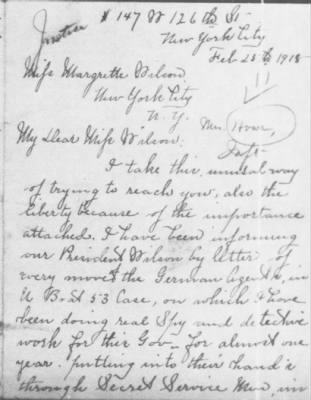 Justice
147 W 126th St
New York City
Feb 25th 1918
Miss Margrette Wilson
New York City
N. Y.
Mrs. Howe,
My Dear Miss Wilson:
I take this, unusual way
of trying to reach you, also the
liberty because of the importance
attached. I have been informing
our President Wilson by letter of
every move of the German Agents, in
U B-st 53 Case, on which I have
been doing real Spy and detective
work for this Gov- for almost one
year. putting into their hand's
through Secret Service Men, in